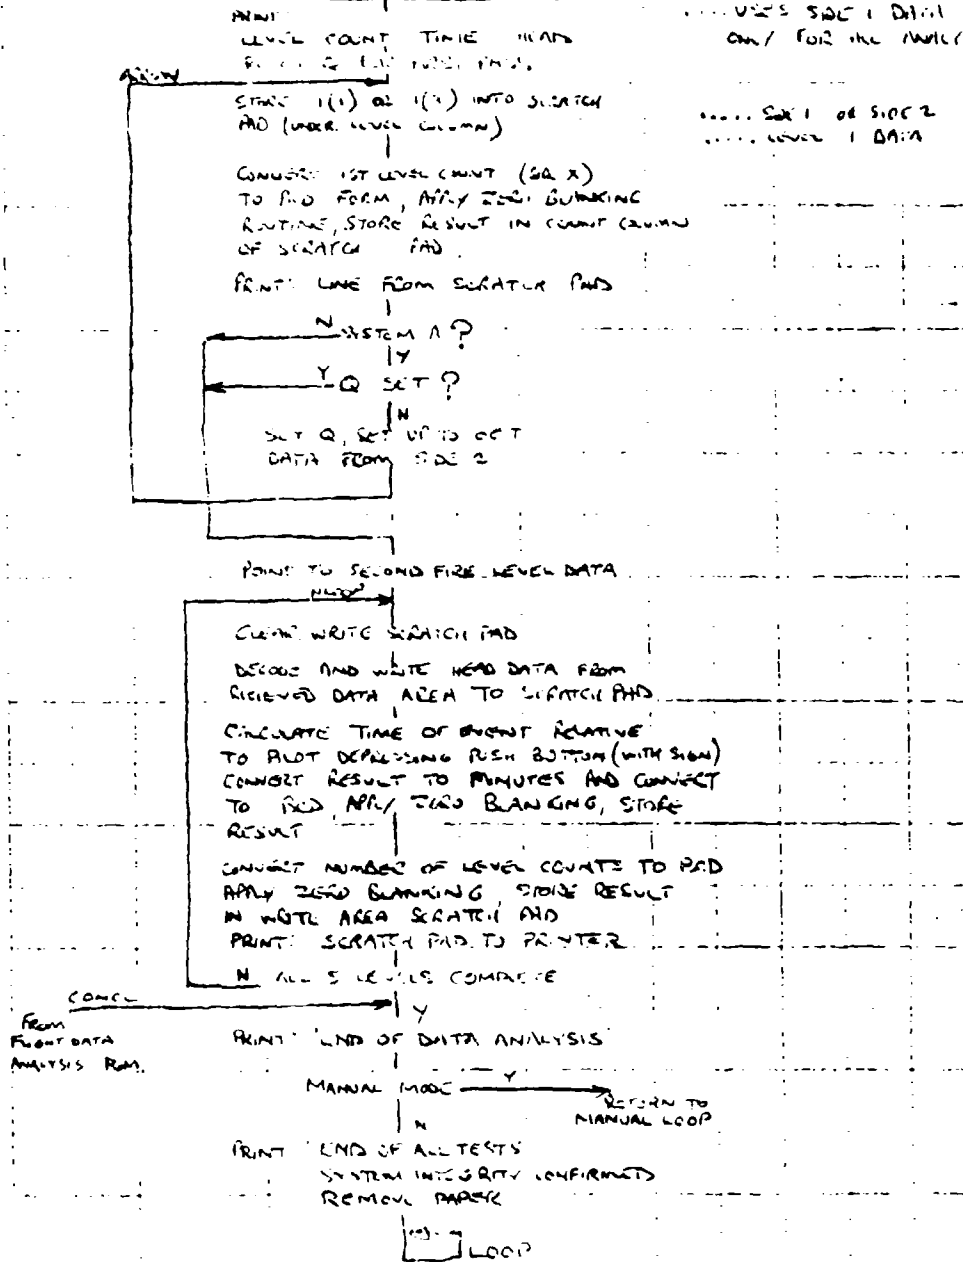 PRINT:
LEVEL COUNT TIME HEAD
.... USES SIDE 1 DATA
ONLY FOR THE
ARROW
STORE 1(1) OR 1(2) INTO SCRATCH
PAD (UNDER LEVEL COLUMN)
..... SIDE 1 OR SIDE 2
..... LEVEL 1 DATA
CONVERT 1ST LEVEL COUNT
TO BCD FORM, APPLY ZERO BLANKING
ROUTINE, STORE RESULT IN COUNT COLUMN
OF SCRATCH PAD.
PRINT: LINE FROM SCRATCH PAD
N SYSTEM A ?
Y
Y Q SET ?
N
SET Q, SET UP TO GET
DATA FROM SIDE 2
POINT TO SECOND FIRE LEVEL DATA
NLOOP
CLEAR WRITE SCRATCH PAD
DECODE AND WRITE HEAD DATA FROM
RECIEVED DATA AREA TO SCRATCH PAD
CIRCULATE TIME OF EVENT RELATIVE
TO PILOT DEPRESSING PUSH BUTTON (WITH SIGN)
CONVERT RESULT TO MINUTES AND CONVERT
TO BCD, APPLY ZERO BLANKING, STORE
RESULT
CONVERT NUMBER OF LEVEL COUNTS TO BCD
APPLY ZERO BLANKING, STORE RESULT
IN WRITE AREA SCRATCH PAD
PRINT: SCRATCH PAD TO PRINTER
N ALL 5 LEVELS COMPLETE
CONCL
Y
FROM
FLIGHT DATA
ANALYSIS ROM.
PRINT: 'END OF DATA ANALYSIS'
MANUAL MODE Y
RETURN TO
MANUAL LOOP
N
PRINT 'END OF ALL TESTS
SYSTEM INTEGRITY CONFIRMED
REMOVE PAPER
LOOP